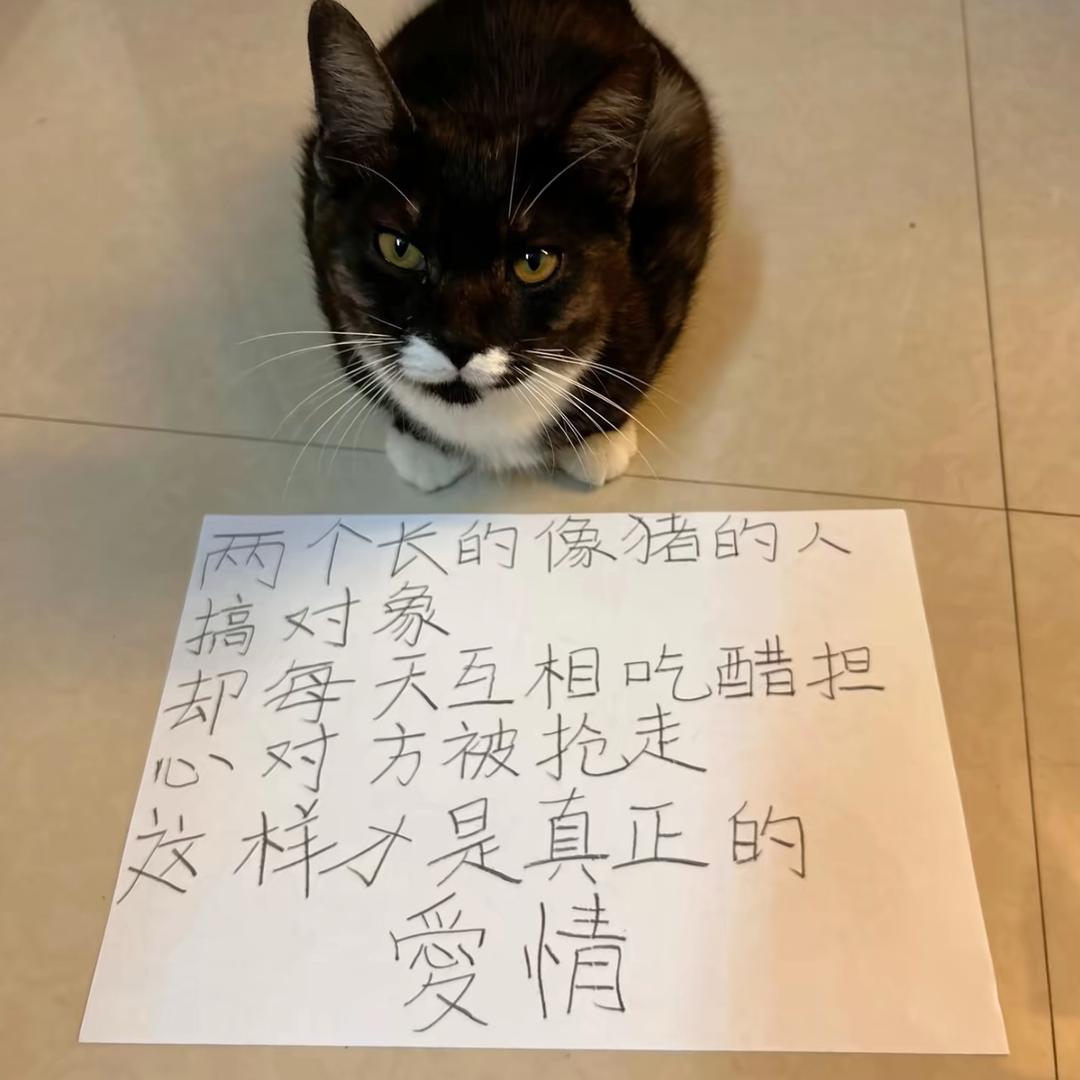 两个长的像猪的人
搞对象
却每天互相吃醋担
心对方被抢走
这样才是真正的
愛情